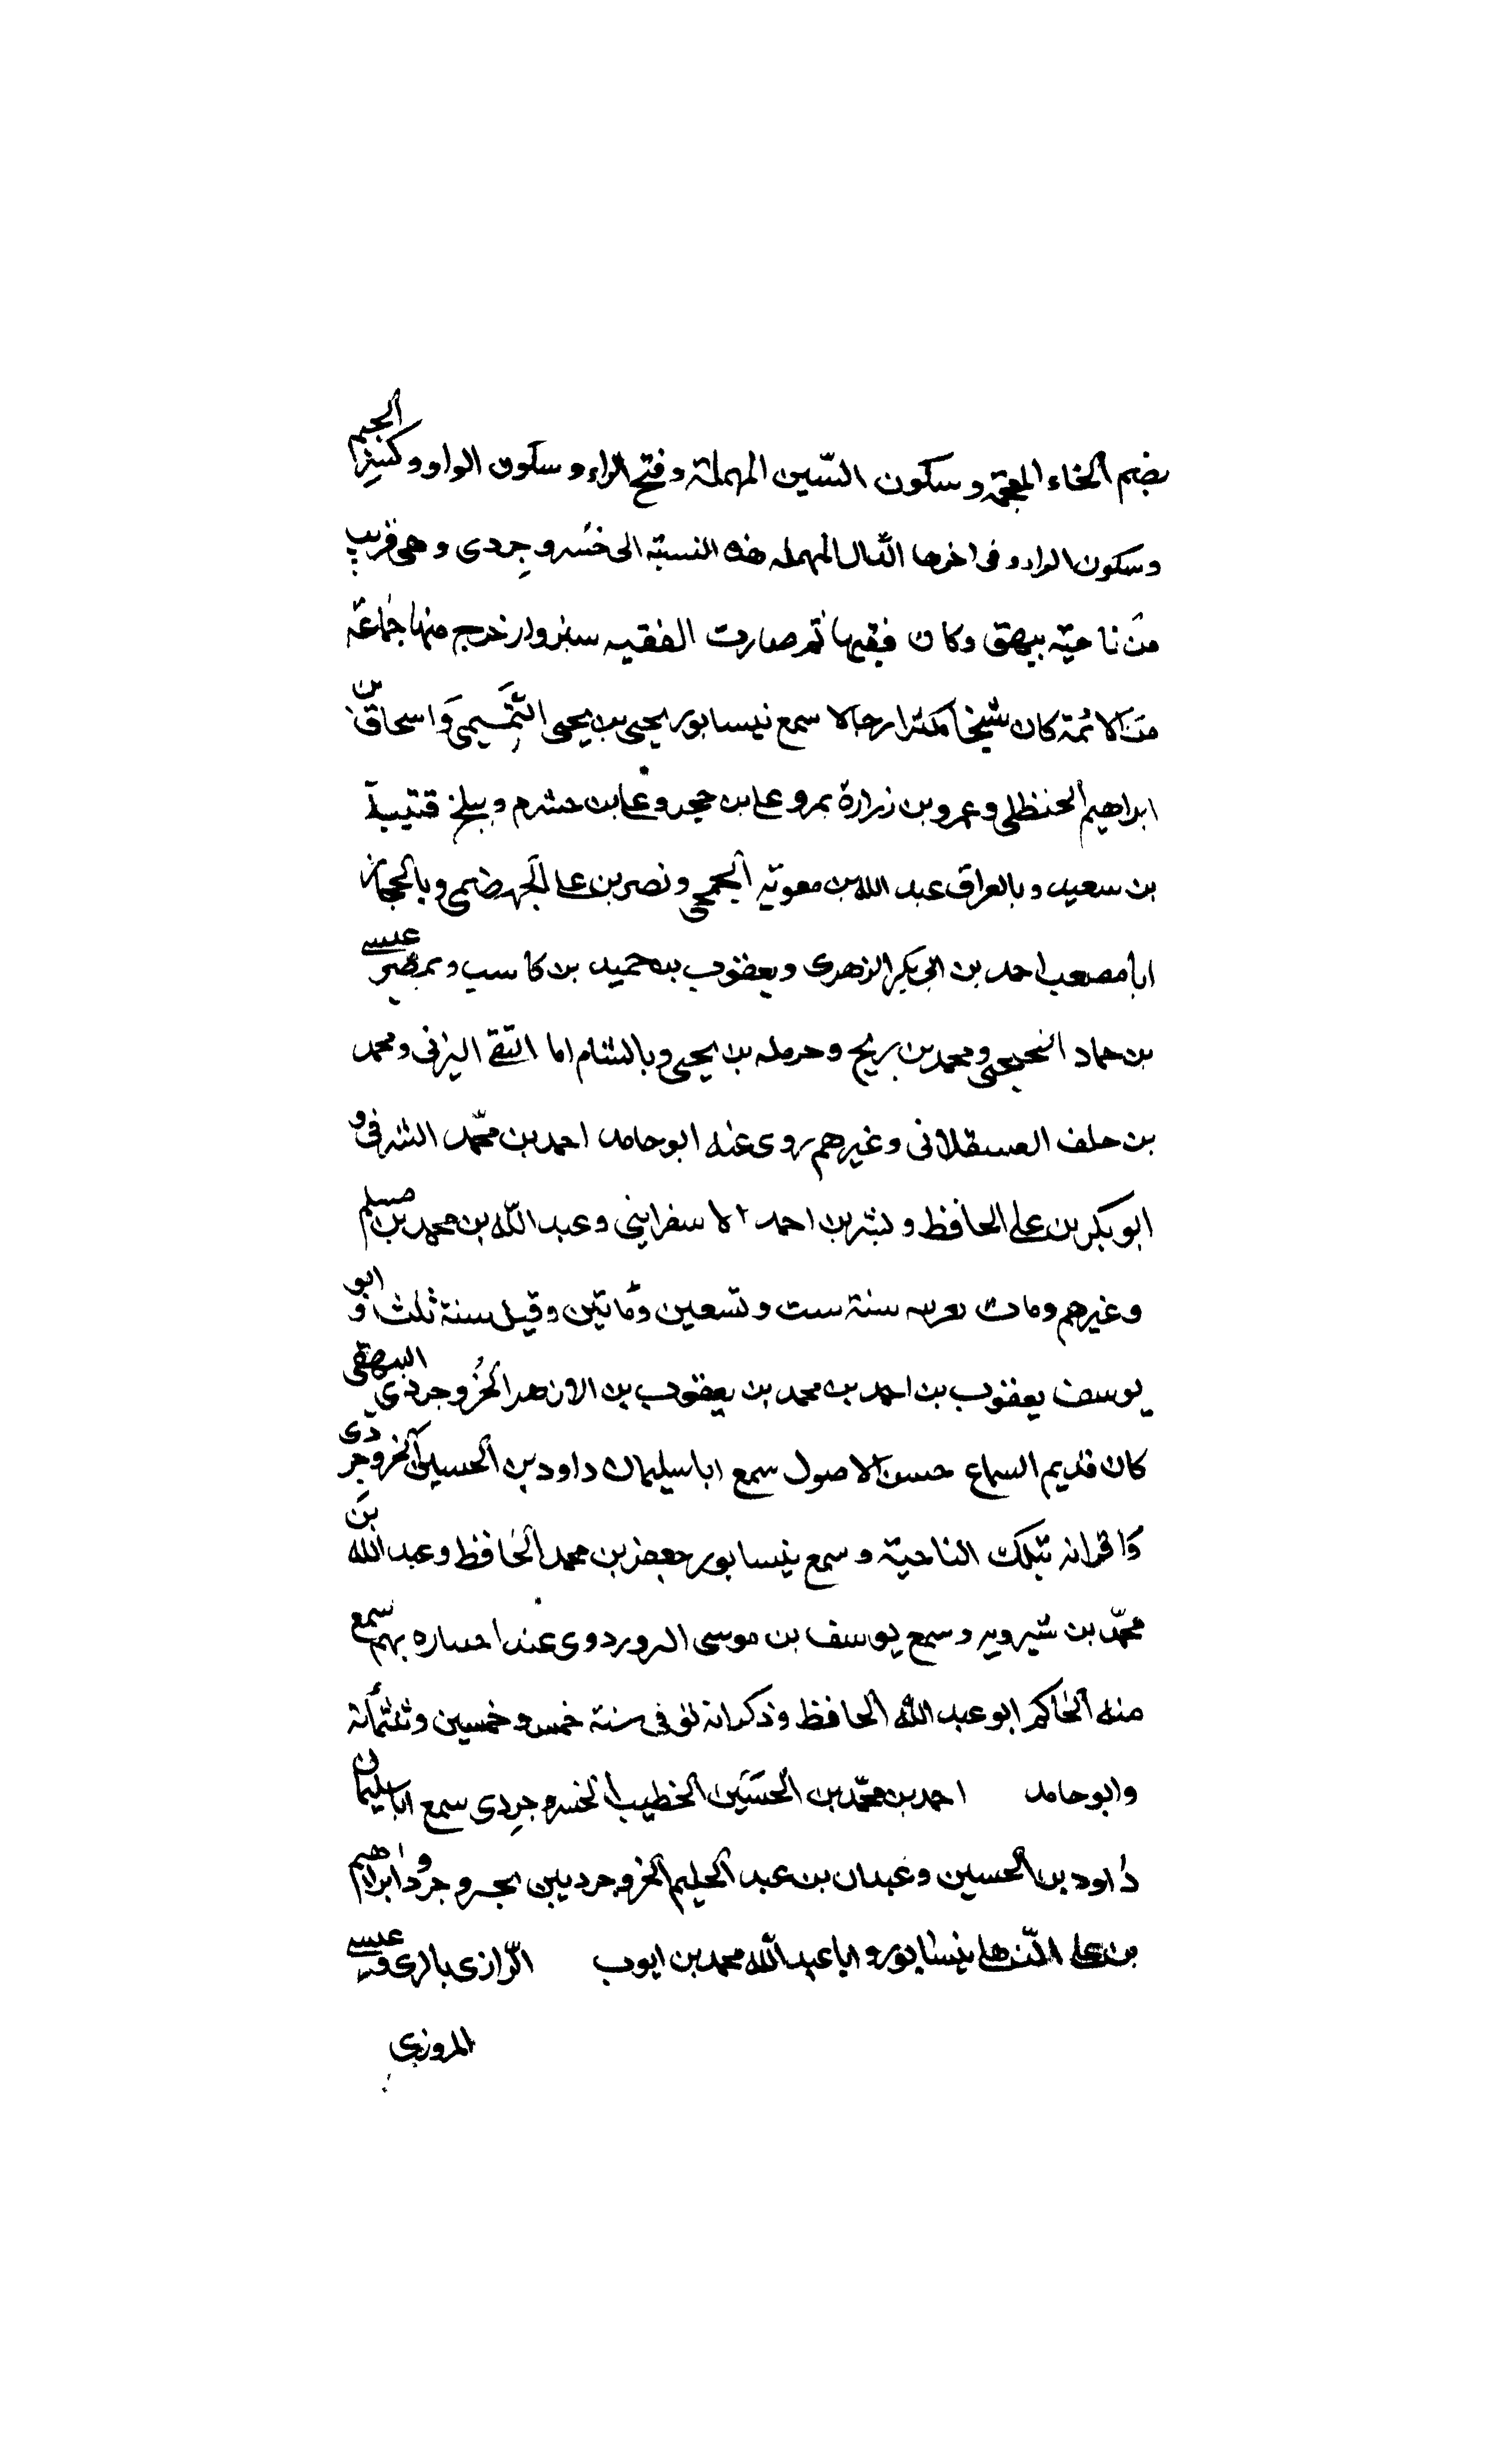 بضم الخاء المعجمة وسكون السّين المهملة وفتح الراء وسكون الواو وكسر الجيم
وسكون الراء وفى اخرها الدّال المهمله هذه النسبة الى خسُروجِردى وهى قرية
من ناحيّة بيهق وكان فيها ثم صارت القصبه سبزوار خرج منها جماعة
من الائمة كان شيخا مكثرا رحالا سمع نيسابور يحيى بن يحيى التَّمِيميَ وَاسحاق بن
ابراهيم الحنظلى وعمرو بن زرارة بمرو على بن حجر وعلى بن خشرم وببلخ قتيبة
بن سعيد وبالعراق عبد الله بن معوية الجمحى ونصر بن على الجهضمى وبالحجاز
ابا مصعب احمد بن ابى بكر الزهرى ويعقوب بن حميد بن كاسب وبمصر عيسى
بن حماد التجيبى ومحمد بن ريح وحرمله بن يحيى وبالشام ابا التقى اليزنى ومحمد
بن خلف العسقلانى وغيرهم روى عنه ابو حامد احمد بن محمّد الشرقى و
ابو بكر بن على الحافظ وبشر بن احمد الاسفراينى وعبد اللّه بن محمد بن مسلم
وغيرهم ومات سنة ست وتسعين ومأتين وقيل سنة ثلث وابو
يوسف يعقوب بن احمد بن محمد بن يعقوب بن الازهر الخُروجردي البيهقى
كان قديم السماع حسن الاصول سمع ابا سليمان داود بن الحسين الخروجردى
وَاقرانه بتلك الناحية وسمع بنيسابور جعفر بن محمد الحافظ وعبد الله بن
محمّد بن شيرويه وسمع يوسف بن موسى المروروذى عند بهم سمع
منه الحاكم ابو عبد اللّه الحافظ وذكر انه توفى سنة خمس وخمسين وثلثمأئة
وابو حامد احمد بن محمّد بن الحسَين الخطيب الخسروجِردى سمع ابا سليمان
داود بن الحسين وعبدان بن عبد الحليم الخروجرديين بخسروجرد وابراهيم
بن على الذّهلى بنيسابور وابا عبد اللّه محمد بن ايوب الرّازى بالرى وعيسى
المروزى